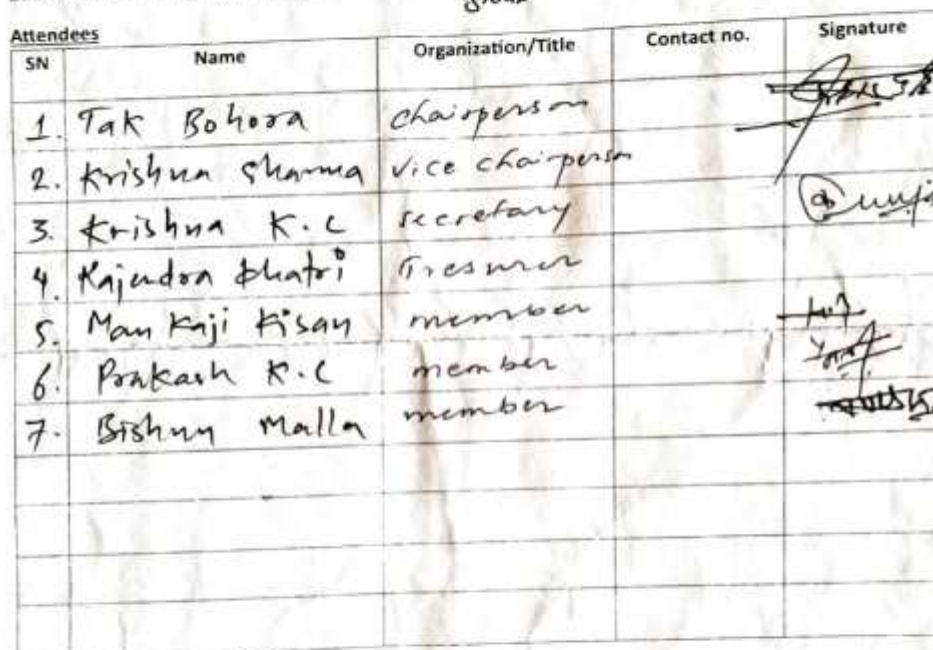 Attendees
SN Name Organization/Title Contact no. Signature
1. Tak Bohora chairperson
2. Krishna Sharma vice chairperson
3. Krishna K.C secretary
4. Kajendra
5. Man Kaji Kisan member
6. Prakash K.C member
7. Bishnu Malla member